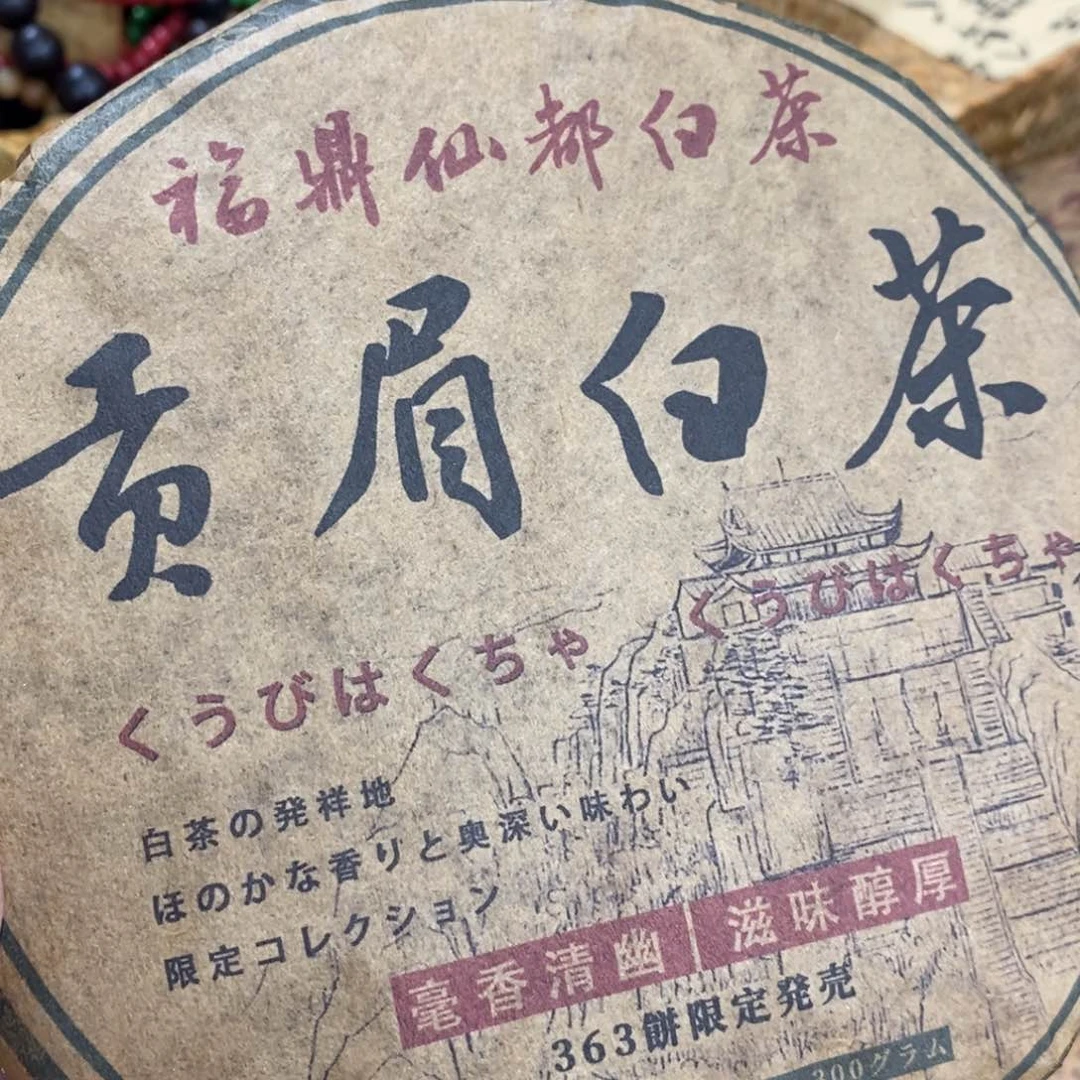 福鼎仙都白茶
贡眉白茶
くうびはくちゃ くうびはくちゃ
白茶の発祥地
ほのかな香りと奥深い味わい
限定コレクション
毫香清幽|滋味醇厚
363餅限定発売
300グラム